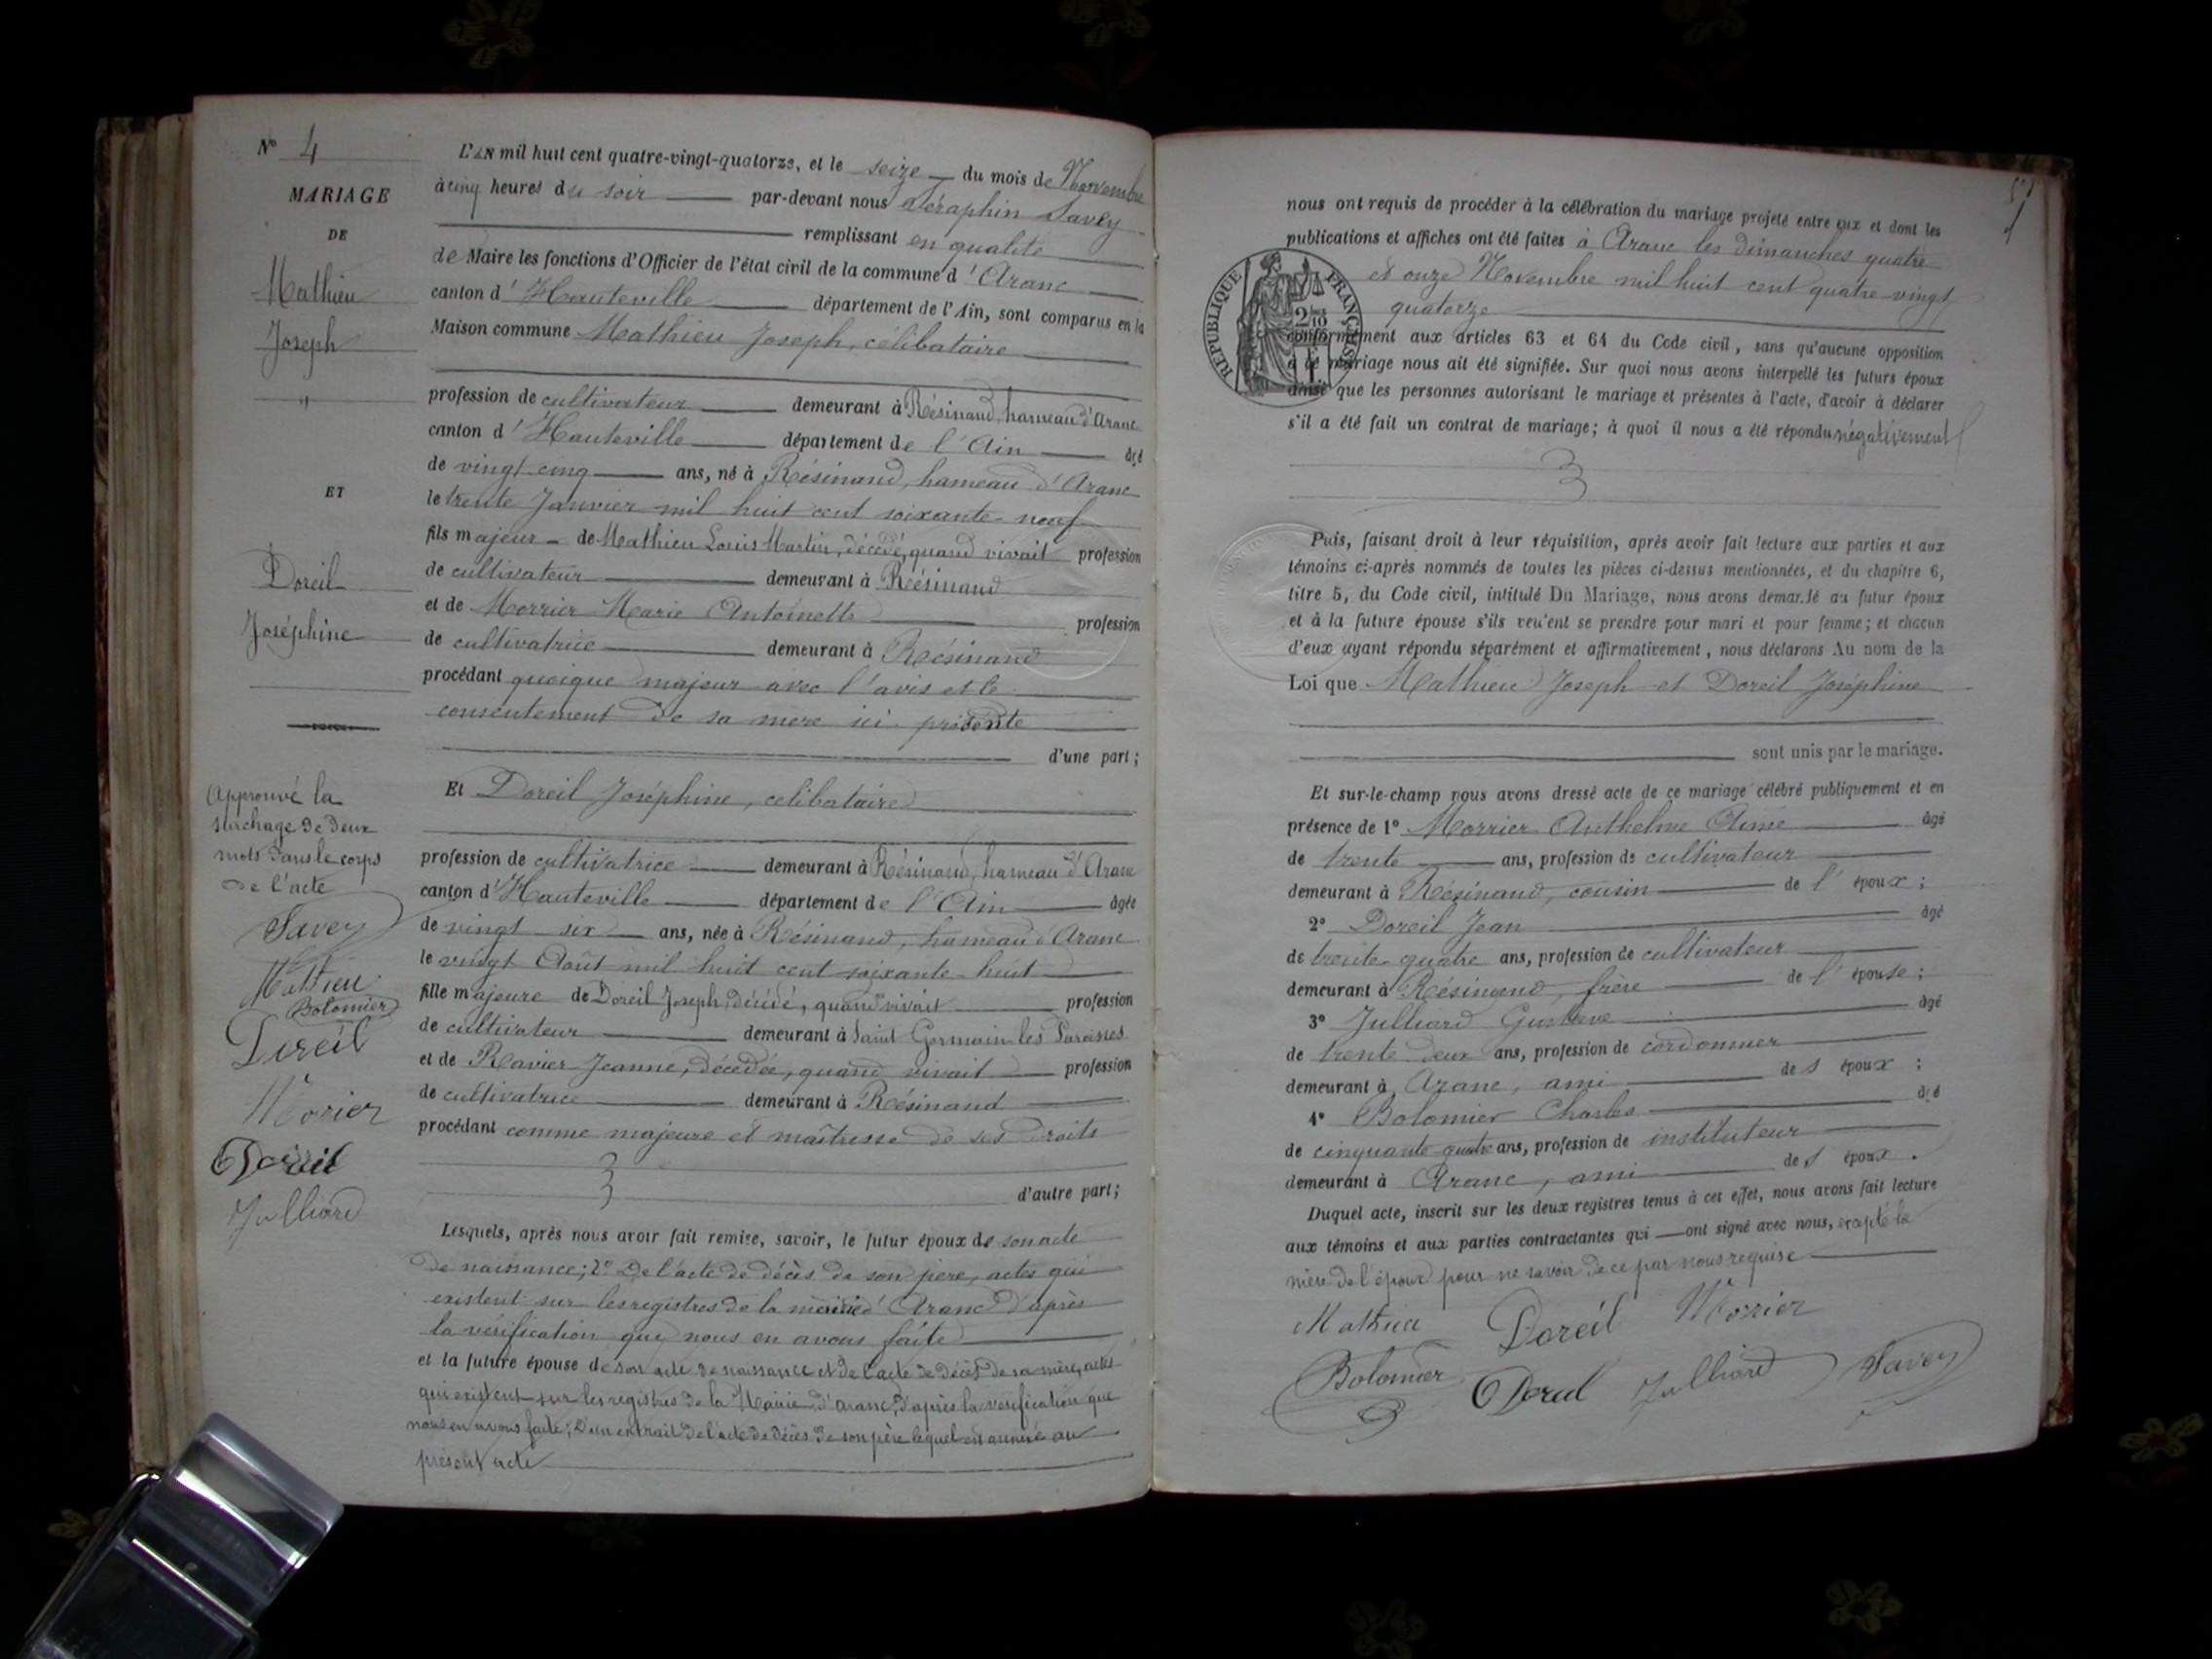 N° 4
MARIAGE
DE
Mathieu
Joseph
ET
Doreil
Joséphine
Approuvé la
surchage de deux
mots dans le corps
de l'acte
Savey
Mathieu
Bolomier
Doreil
Morier
Doreil
Julliard
L'AN mil huit cent quatre-vingt-quatorze, et le seize du mois de Novembre
à cinq heures du soir par-devant nous Séraphin Savey
remplissant en qualité
de Maire les fonctions d'Officier de l'état civil de la commune d'Aranc
canton d'Hauteville département de l'Ain, sont comparus en la
Maison commune Mathieu Joseph, célibataire
profession de cultivateur demeurant à Résinand, hameau d'Aranc
canton d'Hauteville département de l'Ain âgé
de vingt cinq ans, né à Résinand, hameau d'Aranc
le trente Janvier mil huit cent soixante-neuf
fils majeur de Mathieu Louis Martin, décédé, quand vivait profession
de cultivateur demeurant à Résinand
et de Morrier Marie Antoinette profession
de cultivatrice demeurant à Résinand
procédant quoique majeur avec l'avis et le
consentement de sa mère ici présente
d'une part;
Et Doreil Joséphine, célibataire
profession de cultivatrice demeurant à Résinand, hameau d'Aranc
canton d'Hauteville département de l'Ain âgée
de vingt six ans, née à Résinand, hameau d'Aranc
le vingt Août mil huit cent soixante-huit
fille majeure de Doreil Joseph, décédé, quand vivait profession
de cultivateur demeurant à Saint Germain les Paroisses
et de Ravier Jeanne, décédée, quand vivait profession
de cultivatrice demeurant à Résinand
procédant comme majeure et maîtresse de ses droits
d'autre part;
Lesquels, après nous avoir fait remise, savoir, le futur époux de son acte
de naissance; 2° De l'acte de décès de son père, actes qui
existent sur les registres de la mairie d'Aranc d'après
la vérification que nous en avons faite
et la future épouse de son acte de naissance et de l'acte de décès de sa mère, actes
qui existent sur les registres de la Mairie d'Aranc, d'après la vérification que
nous en avons faite; D'un extrait de l'acte de décès de son père lequel est annexé au
présent acte
nous ont requis de procéder à la célébration du mariage projeté entre eux et dont les
publications et affiches ont été faites à Aranc les dimanches quatre
et onze Novembre mil huit cent quatre-vingt
quatorze
RÉPUBLIQUE FRANÇAISE
conformément aux articles 63 et 64 du Code civil, sans qu'aucune opposition
à ce mariage nous ait été signifiée. Sur quoi nous avons interpellé les futurs époux
ainsi que les personnes autorisant le mariage et présentes à l'acte, d'avoir à déclarer
s'il a été fait un contrat de mariage; à quoi il nous a été répondu négativement
Puis, faisant droit à leur réquisition, après avoir fait lecture aux parties et aux
témoins ci-après nommés de toutes les pièces ci-dessus mentionnées, et du chapitre 6,
titre 5, du Code civil, intitulé Du Mariage, nous avons demandé au futur époux
et à la future épouse s'ils veulent se prendre pour mari et pour femme; et chacun
d'eux ayant répondu séparément et affirmativement, nous déclarons Au nom de la
Loi que Mathieu Joseph et Doreil Joséphine
sont unis par le mariage.
Et sur-le-champ nous avons dressé acte de ce mariage célébré publiquement et en
présence de 1° Morrier Anthelme Aimé âgé
de trente ans, profession de cultivateur
demeurant à Résinand, cousin de l'époux;
2° Doreil Jean âgé
de trente-quatre ans, profession de cultivateur
demeurant à Résinand, frère de l'épouse;
3° Julliard Gustave âgé
de trente deux ans, profession de cordonnier
demeurant à Aranc, ami des époux;
4° Bolomier Charles âgé
de cinquante-quatre ans, profession de instituteur
demeurant à Aranc, ami des époux.
Duquel acte, inscrit sur les deux registres tenus à cet effet, nous avons fait lecture
aux témoins et aux parties contractantes qui ont signé avec nous, excepté la
mère de l'époux pour ne savoir de ce par nous requise
Mathieu Doreil Morrier
Bolomier Doreil Julliard Savey